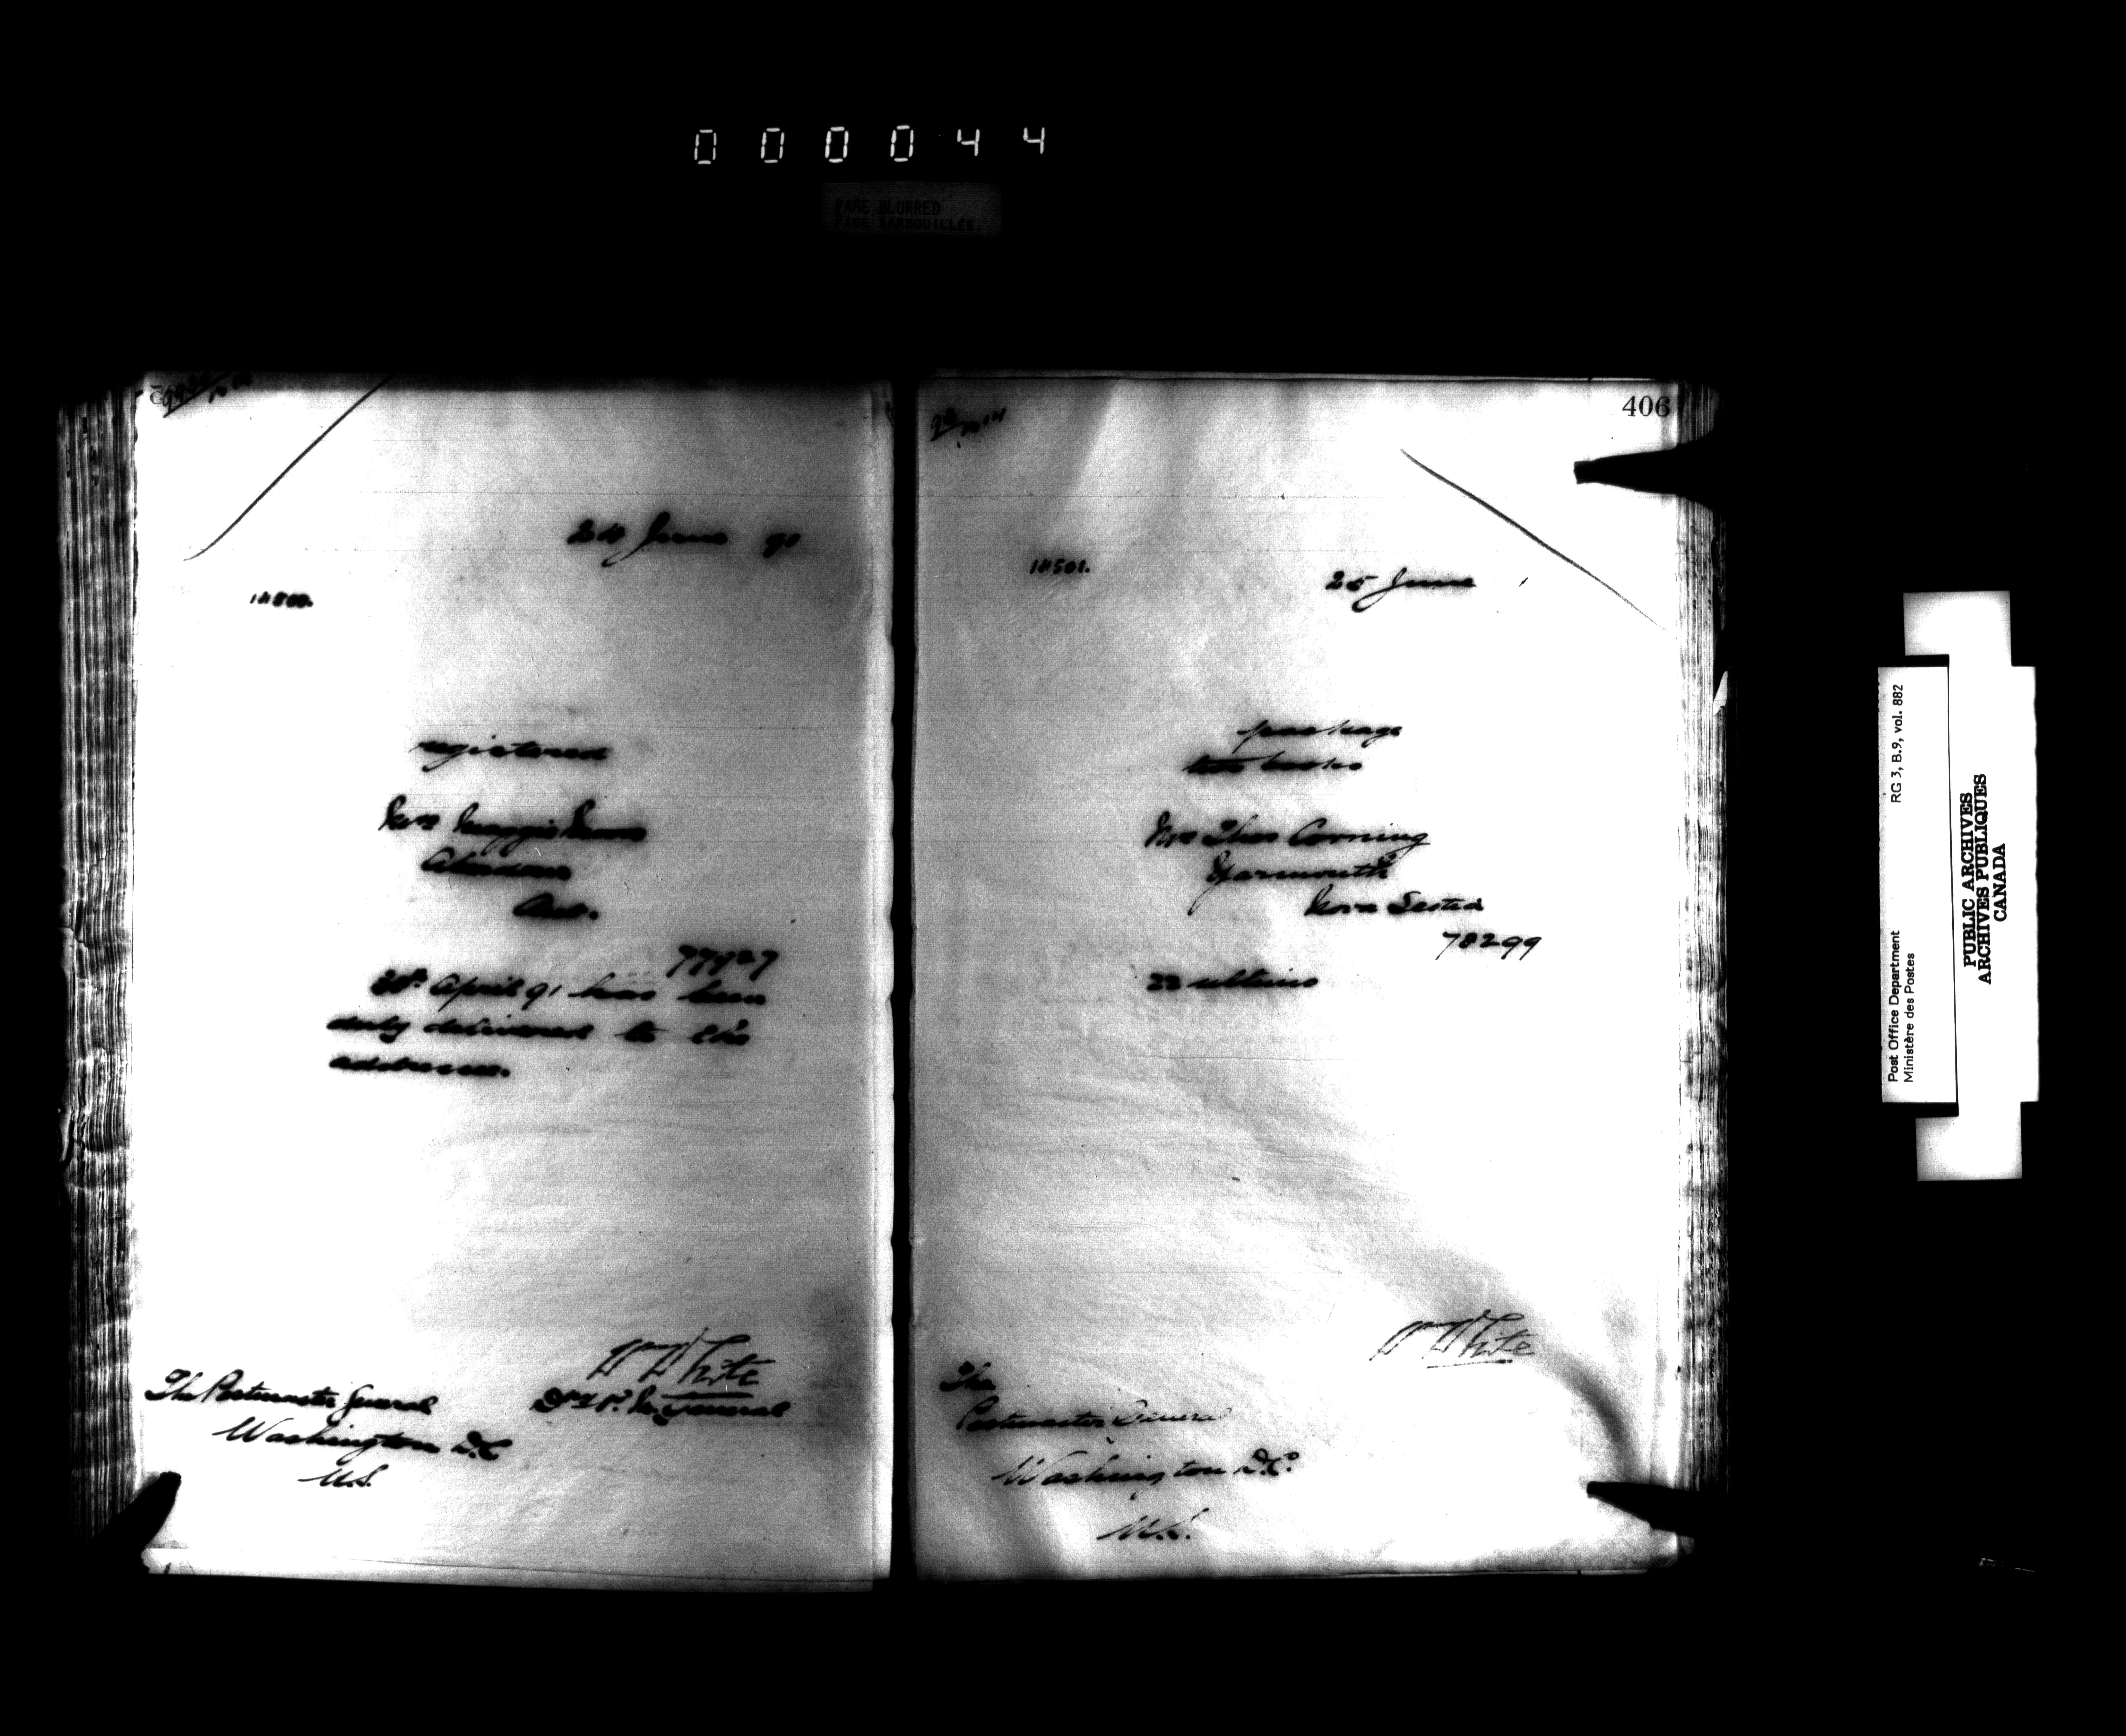 000044
PAGE BLURRED
PAGE BARBOUILLÉE
24 June 91
registered
Mrs Maggie
Ont.
77927
April 91 has been
duly delivered to its
address.
W White
Dpy P. M. General
The Postmaster General
Washington D.C
U.S.
406
14501.
25 June
package
two books
Mrs Thos Corning
Yarmouth
Nova Scotia
78299
22 ultimo
W White
The
Postmaster General
Washington D.C.
U.S.
Post Office Department
Ministère des Postes
RG 3, B.9, vol. 882
PUBLIC ARCHIVES
ARCHIVES PUBLIQUES
CANADA